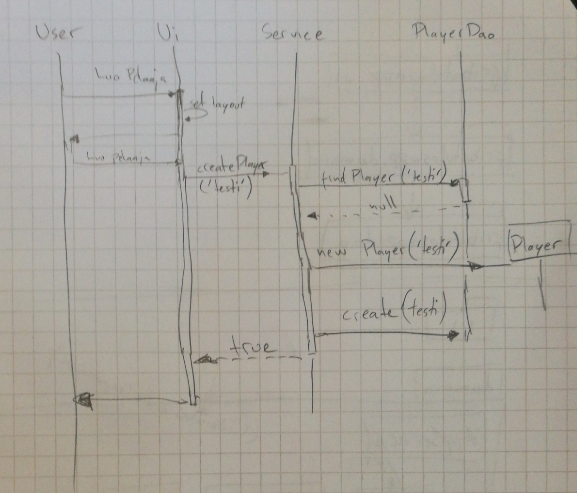 User Ui Service PlayerDao
Luo Pelaaja
set layout
Luo pelaaja
createPlayer
('testi')
findPlayer('testi')
null
new Player('testi')
Player
create(testi)
true